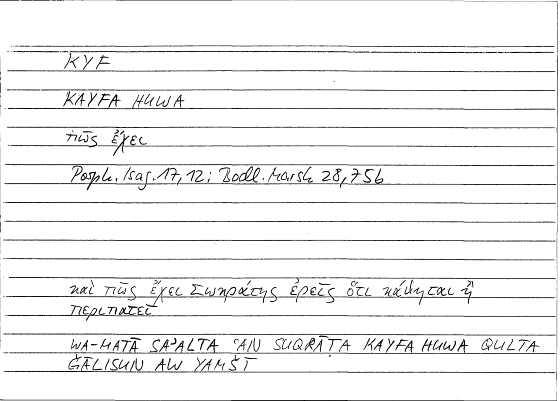 KYF
KAYFA HUWA
πῶς ἔχει
Porph. Isag. 17,12; Bodl. Marsh 28,75b
καὶ πῶς ἔχει Σωκράτης ἐρεῖς ὅτι κάθηται ἢ
περιπατεῖ
WA-MATĀ SAʾALTA ʿAN SUQRĀṬA KAYFA HUWA QULTA
ǦĀLISUN AW YAMŠĪ